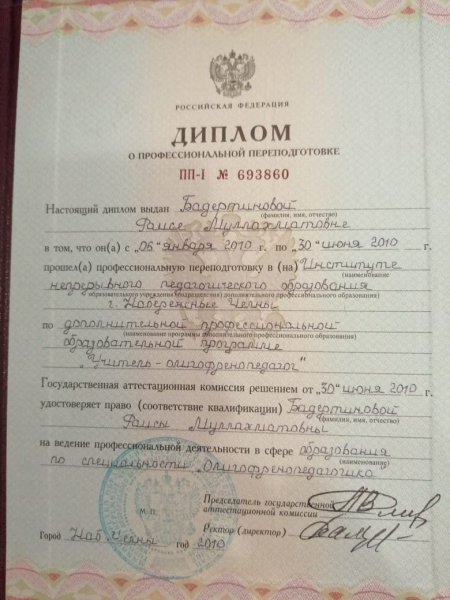 РОССИЙСКАЯ ФЕДЕРАЦИЯ
ДИПЛОМ
О ПРОФЕССИОНАЛЬНОЙ ПЕРЕПОДГОТОВКЕ
ПП-I № 693860
Настоящий диплом выдан Бадертиновой
(фамилия, имя, отчество)
Раисе Муллахматовне
в том, что он(а) с „06“ января 2010 г. по „30“ июня 2010 г.
прошел(а) профессиональную переподготовку в (на) Институте
(наименование
непрерывного педагогического образования
образовательного учреждения (подразделения) дополнительного профессионального образования)
г. Набережные Челны
по дополнительной профессиональной
(наименование программы дополнительного профессионального образования)
образовательной программе
"Учитель-олигофренопедагог"
Государственная аттестационная комиссия решением от „30“ июня 2010 г.
удостоверяет право (соответствие квалификации) Бадертиновой
(фамилия, имя, отчество)
Раисы Муллахматовны
на ведение профессиональной деятельности в сфере образования
(наименование)
по специальности „Олигофренопедагогика“
Председатель государственной
аттестационной комиссии
М. П.
Ректор (директор)
Город Наб. Челны год 2010